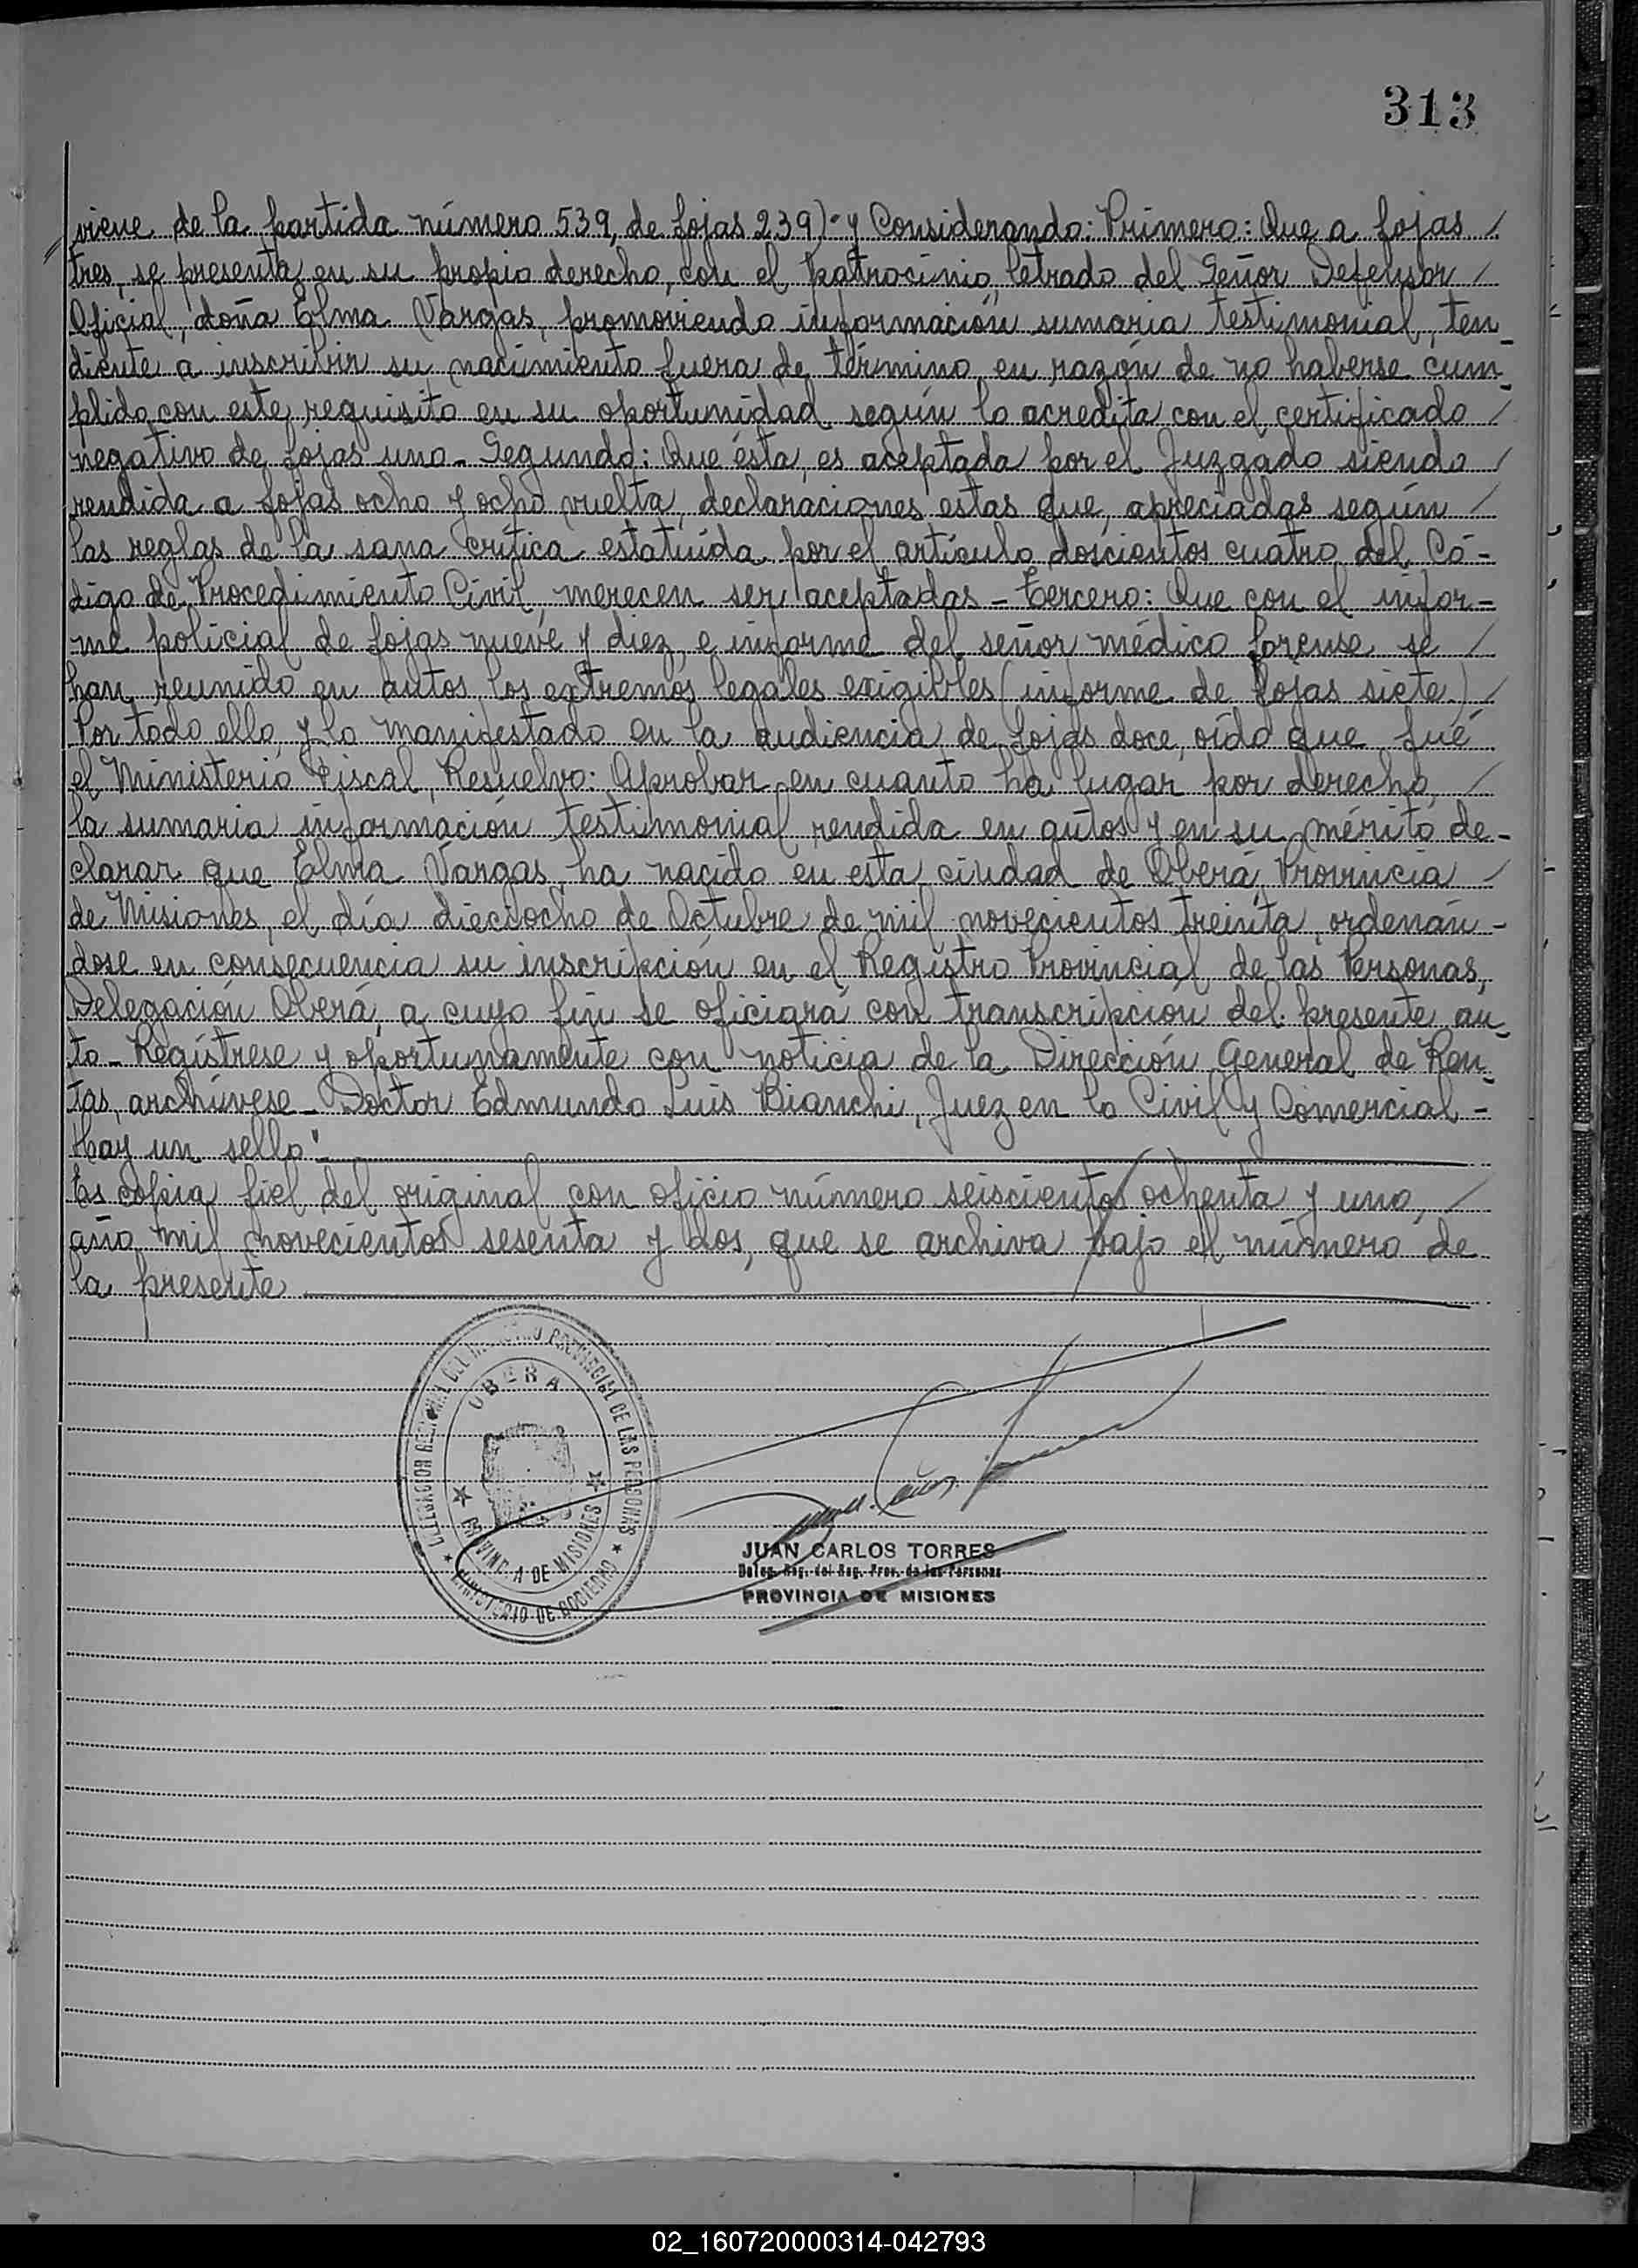 313
viene de la partida número 539, de fojas 239)- y Considerando: Primero: Que a fojas /
tres, se presenta en su propio derecho, con el patrocinio letrado del Señor Defensor /
Oficial, doña Elma Vargas, promoviendo información sumaria testimonial, ten_
diente a inscribir su nacimiento fuera de término, en razón de no haberse cum_
plido con este requisito en su oportunidad, según lo acredita con el certificado /
negativo de fojas uno_ Segundo: Que ésta, es aceptada por el Juzgado siendo /
rendida a fojas ocho y ocho vuelta, declaraciones estas que, apreciadas según /
las reglas de la sana crítica estatuída por el artículo doscientos cuatro del Có-
digo de Procedimiento Civil, merecen ser aceptadas_ Tercero: Que con el infor-
me policial de fojas nueve y diez, e informe del señor médico forense se /
han reunido en autos los extremos legales exigibles (informe de fojas siete) /
Por todo ello, y lo manifestado en la audiencia de fojas doce, oído que fué
el Ministerio Fiscal, Resuelvo: Aprobar en cuanto ha lugar por derecho, /
la sumaria información testimonial rendida en autos y en su mérito de-
clarar que Elma Vargas, ha nacido en esta ciudad de Oberá, Provincia /
de Misiones, el día dieciocho de Octubre de mil novecientos treinta, ordenán-
dose en consecuencia su inscripción en el Registro Provincial de las Personas,
Delegación Oberá, a cuyo fin se oficiará con transcripción del presente au_
to_ Regístrese y oportunamente con noticia de la Dirección General de Ren_
tas, archívese_ Doctor Edmundo Luis Bianchi, Juez en lo Civil y Comercial-
Hay un sello"
Es copia fiel del original con oficio número seiscientos ochenta y uno, /
año mil novecientos sesenta y dos, que se archiva bajo el número de
la presente
DELEGACION REGIONAL DEL REGISTRO PROVINCIAL DE LAS PERSONAS
OBERA
PROVINCIA DE MISIONES
MINISTERIO DE GOBIERNO
JUAN CARLOS TORRES
Deleg. Reg. del Reg. Prov. de las Personas
PROVINCIA DE MISIONES
02_160720000314-042793